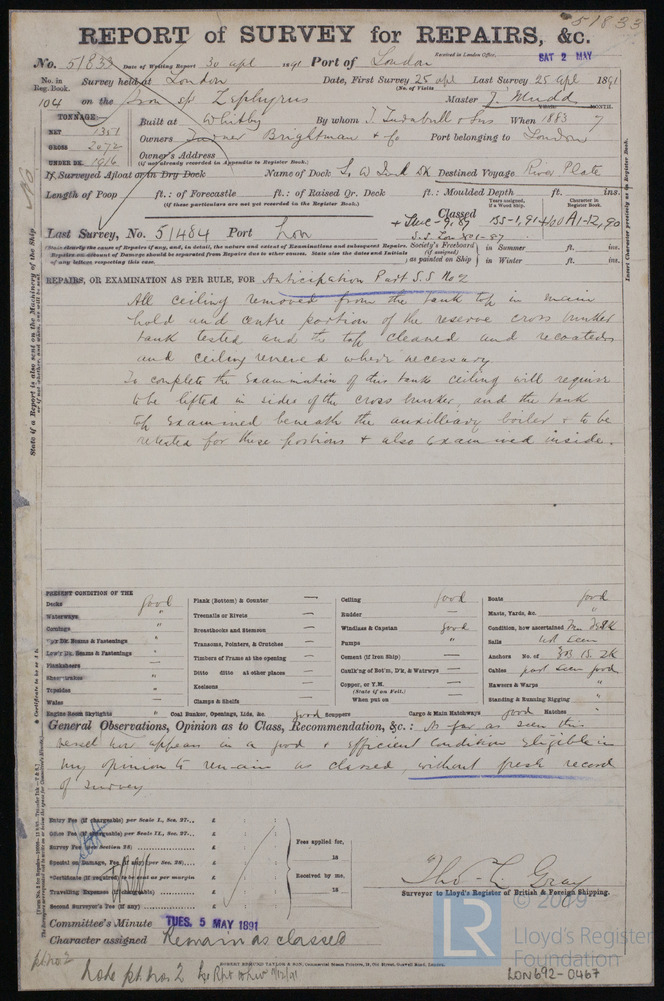 51833
REPORT of SURVEY for REPAIRS, &c.
Received in London Office,
No. 51833 Date of Writing Report 30 apl 1891 Port of London SAT 2 MAY
No. in Reg. Book. Survey held at London Date, First Survey 25 apl Last Survey 25 apl 1891
(No. of Visits
104 on the Iron sp Zephyrus Master J. Mudd
YEAR. MONTH.
TONNAGE:— Built at Whitby By whom T. Turnbull & Sns When 1883 7
NET 1351
GROSS 2072 Owners Turner Brightman & Co Port belonging to London
UNDER DK. 1916 Owner's Address
(if not already recorded in Appendix to Register Book.)
If Surveyed Afloat or in Dry Dock Name of Dock S. W Ind Dk Destined Voyage River Plate
Length of Poop ft.: of Forecastle ft.: of Raised Qr. Deck ft.: Moulded Depth ft. ins.
(if these particulars are not yet recorded in the Register Book.)
Years assigned, if a Wood Ship. Character in Register Book.
Classed
Last Survey, No. 51484 Port Lon
Society's Freeboard (if assigned) as painted on Ship in Summer ft. ins.
in Winter ft. ins.
(State clearly the cause of Repairs if any, and, in detail, the nature and extent of Examinations and subsequent Repairs. Repairs on account of Damage should be separated from Repairs due to other causes. State also the dates and Initials of any letters respecting this case.
REPAIRS, OR EXAMINATION AS PER RULE, FOR Anticipation Part S.S No 2
All ceiling removed from the tank top in main
hold and centre portion of the reserve cross bunker
tank tested and the top cleaned and recoated
and ceiling renewed where necessary
To complete the Examination of this tank ceiling will require
to be lifted in sides of the cross bunker, and the tank
top examined beneath the auxilliary boiler & to be
retested for these portions & also examined inside.
PRESENT CONDITION OF THE
Decks good
Waterways "
Comings "
Upp'r Dk. Beams & Fastenings "
Low'r Dk. Beams & Fastenings "
Planksheers —
Sheerstrakes "
Topsides "
Wales —
Engine Room Skylights "
Plank (Bottom) & Counter —
Treenails or Rivets —
Breasthooks and Stemson —
Transoms, Pointers, & Crutches —
Timbers of Frame at the opening —
Ditto ditto at other places —
Keelsons —
Clamps & Shelfs —
Coal Bunker, Openings, Lids, &c. good Scuppers
Ceiling good
Rudder —
Windlass & Capstan good
Pumps "
Cement (if Iron Ship) —
Caulk'ng of Bot'm, D'k, & Watrwys —
Copper, or Y.M. —
(State if on Felt.)
When put on —
Cargo & Main Hatchways good Hatches "
Boats good
Masts, Yards, &c. "
Condition, how ascertained
Sails not seen
Anchors No. of 3B 1S. 2K
Cables part seen good
Hawsers & Warps "
Standing & Running Rigging "
General Observations, Opinion as to Class, Recommendation, &c.: As far as seen this
vessel now appears in a good & efficient condition eligible in
my opinion to remain as classed, without fresh record
of survey
Entry Fee (if chargeable) per Scale I., Sec. 27.. £
Other Fee (if chargeable) per Scale II., Sec. 27.. £
Survey Fee (see Section 28) £
Special or Damage Fee, if any (per Sec. 28) £
*Certificate (if required) to be sent as per margin
Travelling Expenses (if chargeable) £
Second Surveyor's Fee (if any) £
Fees applied for,
18
Received by me,
18
Tho. L. Gray
Surveyor to Lloyd's Register of British & Foreign Shipping.
Committee's Minute TUES. 5 MAY 1891
Character assigned Remain as classed
ROBERT EDMUND TAYLOR & SON, Commercial Steam Printers, 19, Old Street, Goswell Road, London.
pt no 2
note pt no 2
LR
© 2019
Lloyd's Register
Foundation
LON692-0467